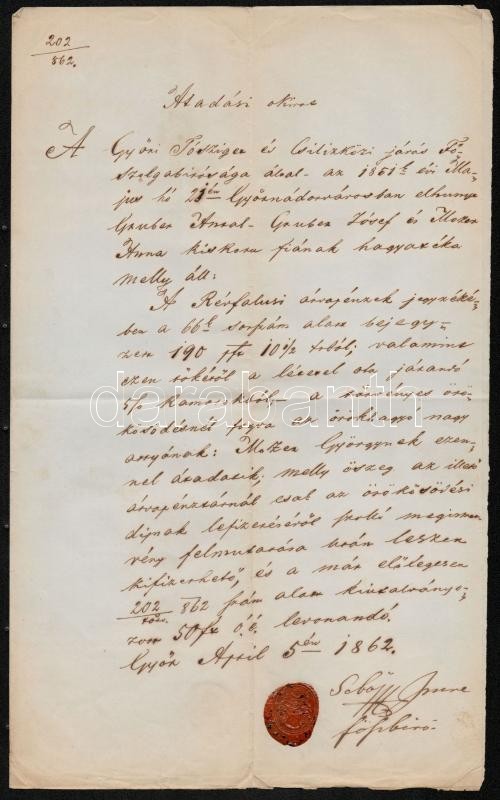 202
862.
Atadási okirat
A Győri Tószigeti és Csilizközi járás Fő=
szolgabirósága által az 1861ik évi Ma=
jus hó 21én Győrnádorvárosban elhunyt
Gruber Antal – Gruber Jósef és Mozer
Anna kiskoru fiának hagyatéka
melly áll:
A Révfalusi árvapénzek jegyzéké=
ben a 66ik sorszám alatt bejegy=
zett 190 pft 10 1/2 tőből; valamint
ezen tőkéről a lécecel ota járandó
5% kamatokból – a törvényes örö=
kösödésnél fogva az örökhagyó nagy
anyjának: Mozer Györgynek ezen=
nel átadatik; melly öszeg az illető
árvapénztárnál csak az örökösödési
dijnak lefizetéséről szolló megismer=
vény felmutatása után leszen
kifizethető, és a már előlegesen
202/862 szám alatt kiutalványo=
zott 50 ft ó.é. levonandó.
Győr April 5én 1862.
Imre
főszbiró
darabanth